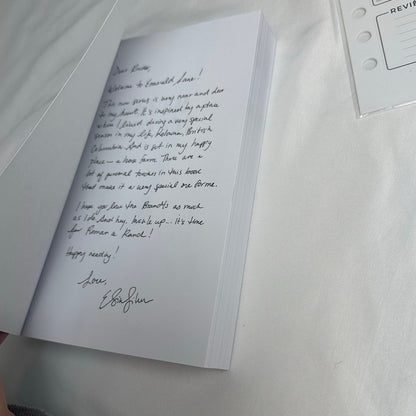 REVIE
Dear Reader,
Welcome to Emerald Lane!
This new series is very near and dear
to my heart. It's inspired by a place
where I lived during a very special
season in my life, Kelowna, British
Columbia. And is set in my happy
place - a horse farm. There are a
lot of personal touches in this book
that make it a very special one for me.
I hope you love the Brandts as much
as I do. And hey, buckle up... It's time
for Roman a Ranch!
Happy reading!
Love,
Elsie Silver